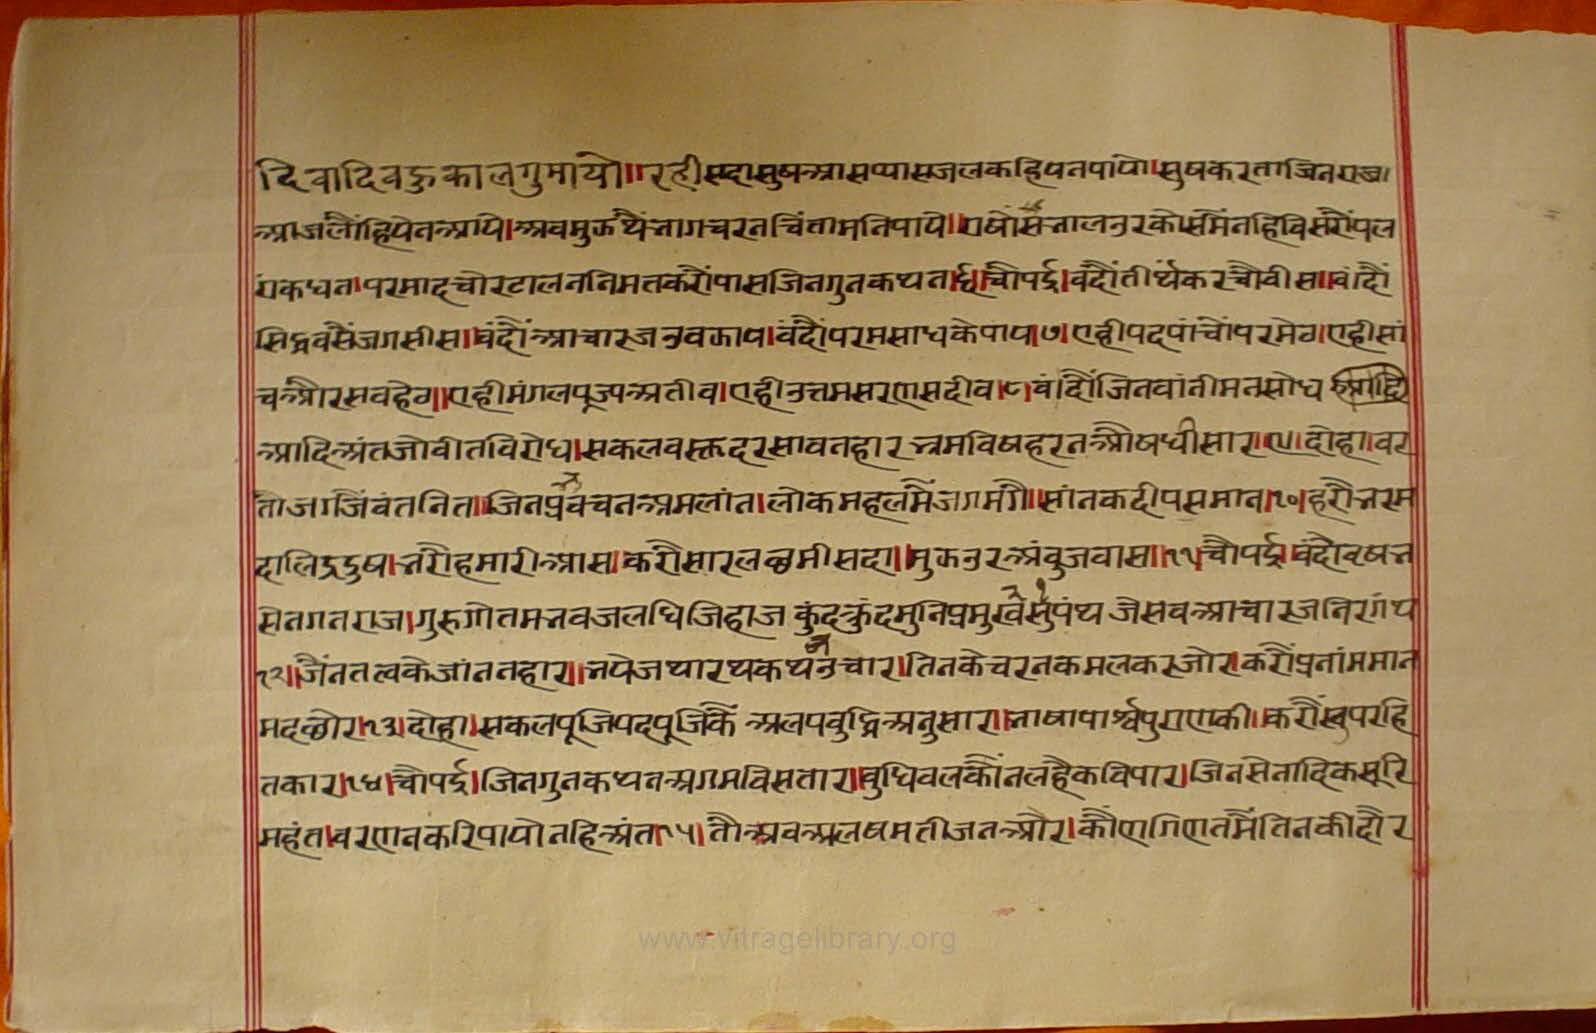 दिवादिवहुकालगुमायो॥रही सदासुषआसप्यासजलकहिषनपायो।सुषकरताजिनराज
आजलौंहियेनआये।अवमुऊथैंभागचरनचिंतामनिपाये॥राषौंसंभालउरकोसमैंनहिविसरौंपल
रांकधन।परमादचोरटालननिमतकरौंपासजिनगुनकथन।६।चौपई।वंदौंतीर्थंकरचौवीस॥वंदौं
सिद्धवसैंजगसीस।वंदौंआचारजउवऊाय।वंदौंपरमसाधकेपाय।७।एहीपदपांचौंपरमेठ।एहीसां
चऔरसवहेठ॥एहीमंगलपूज्यअतीव।एहीउत्तमसरणसदीव।८।वंदौंजिनवांनीमनसोध
आदिअंतजोवीतविरोध।सकलवस्तुदरसावनहार भ्रमविषहरनऔषधीसार।९।दोहा।वर
तोजगजैवंतनित॥जिनप्रवचनअमलांन।लोकमहलमैंजगमगै॥मांनकदीपसमान।१०।हरौभरम
दालिद्रदुष।भरौहमारीआस।करौसारलछमीसदा॥मुऊउरअंवुजवास॥११।चौपई।वंदौवृषभ
सेनगनराज।गुरुगोतमभवजलधिजिहाज कुंदकुंदमुनिप्रमुखसुपंथ जेसवआचारजनिरगंथ
१२॥जैनतत्वकेजांननहार॥भयेजथारथकथनउचार।तिनकेचरनकमलकरजोर।करौंप्रनांममान
मदछोर।१३।दोहा।सकलपूजिपदपूजिकैं अलपवुद्धिअनुसार।भाषापार्श्वपुराणकी।करौंस्वपरहि
तकार।१४।चौपई।जिनगुनकथनअगमविसतार।वुधिवलकौंनलहैकविपार।जिनसेनादिकसूरि
महंत।वरणनकरिपायोनहिअंत।१५।तौअवअलषमतीजनऔर।कौंणगिणतमैंतिनकीदौर
www.vitragelibrary.org